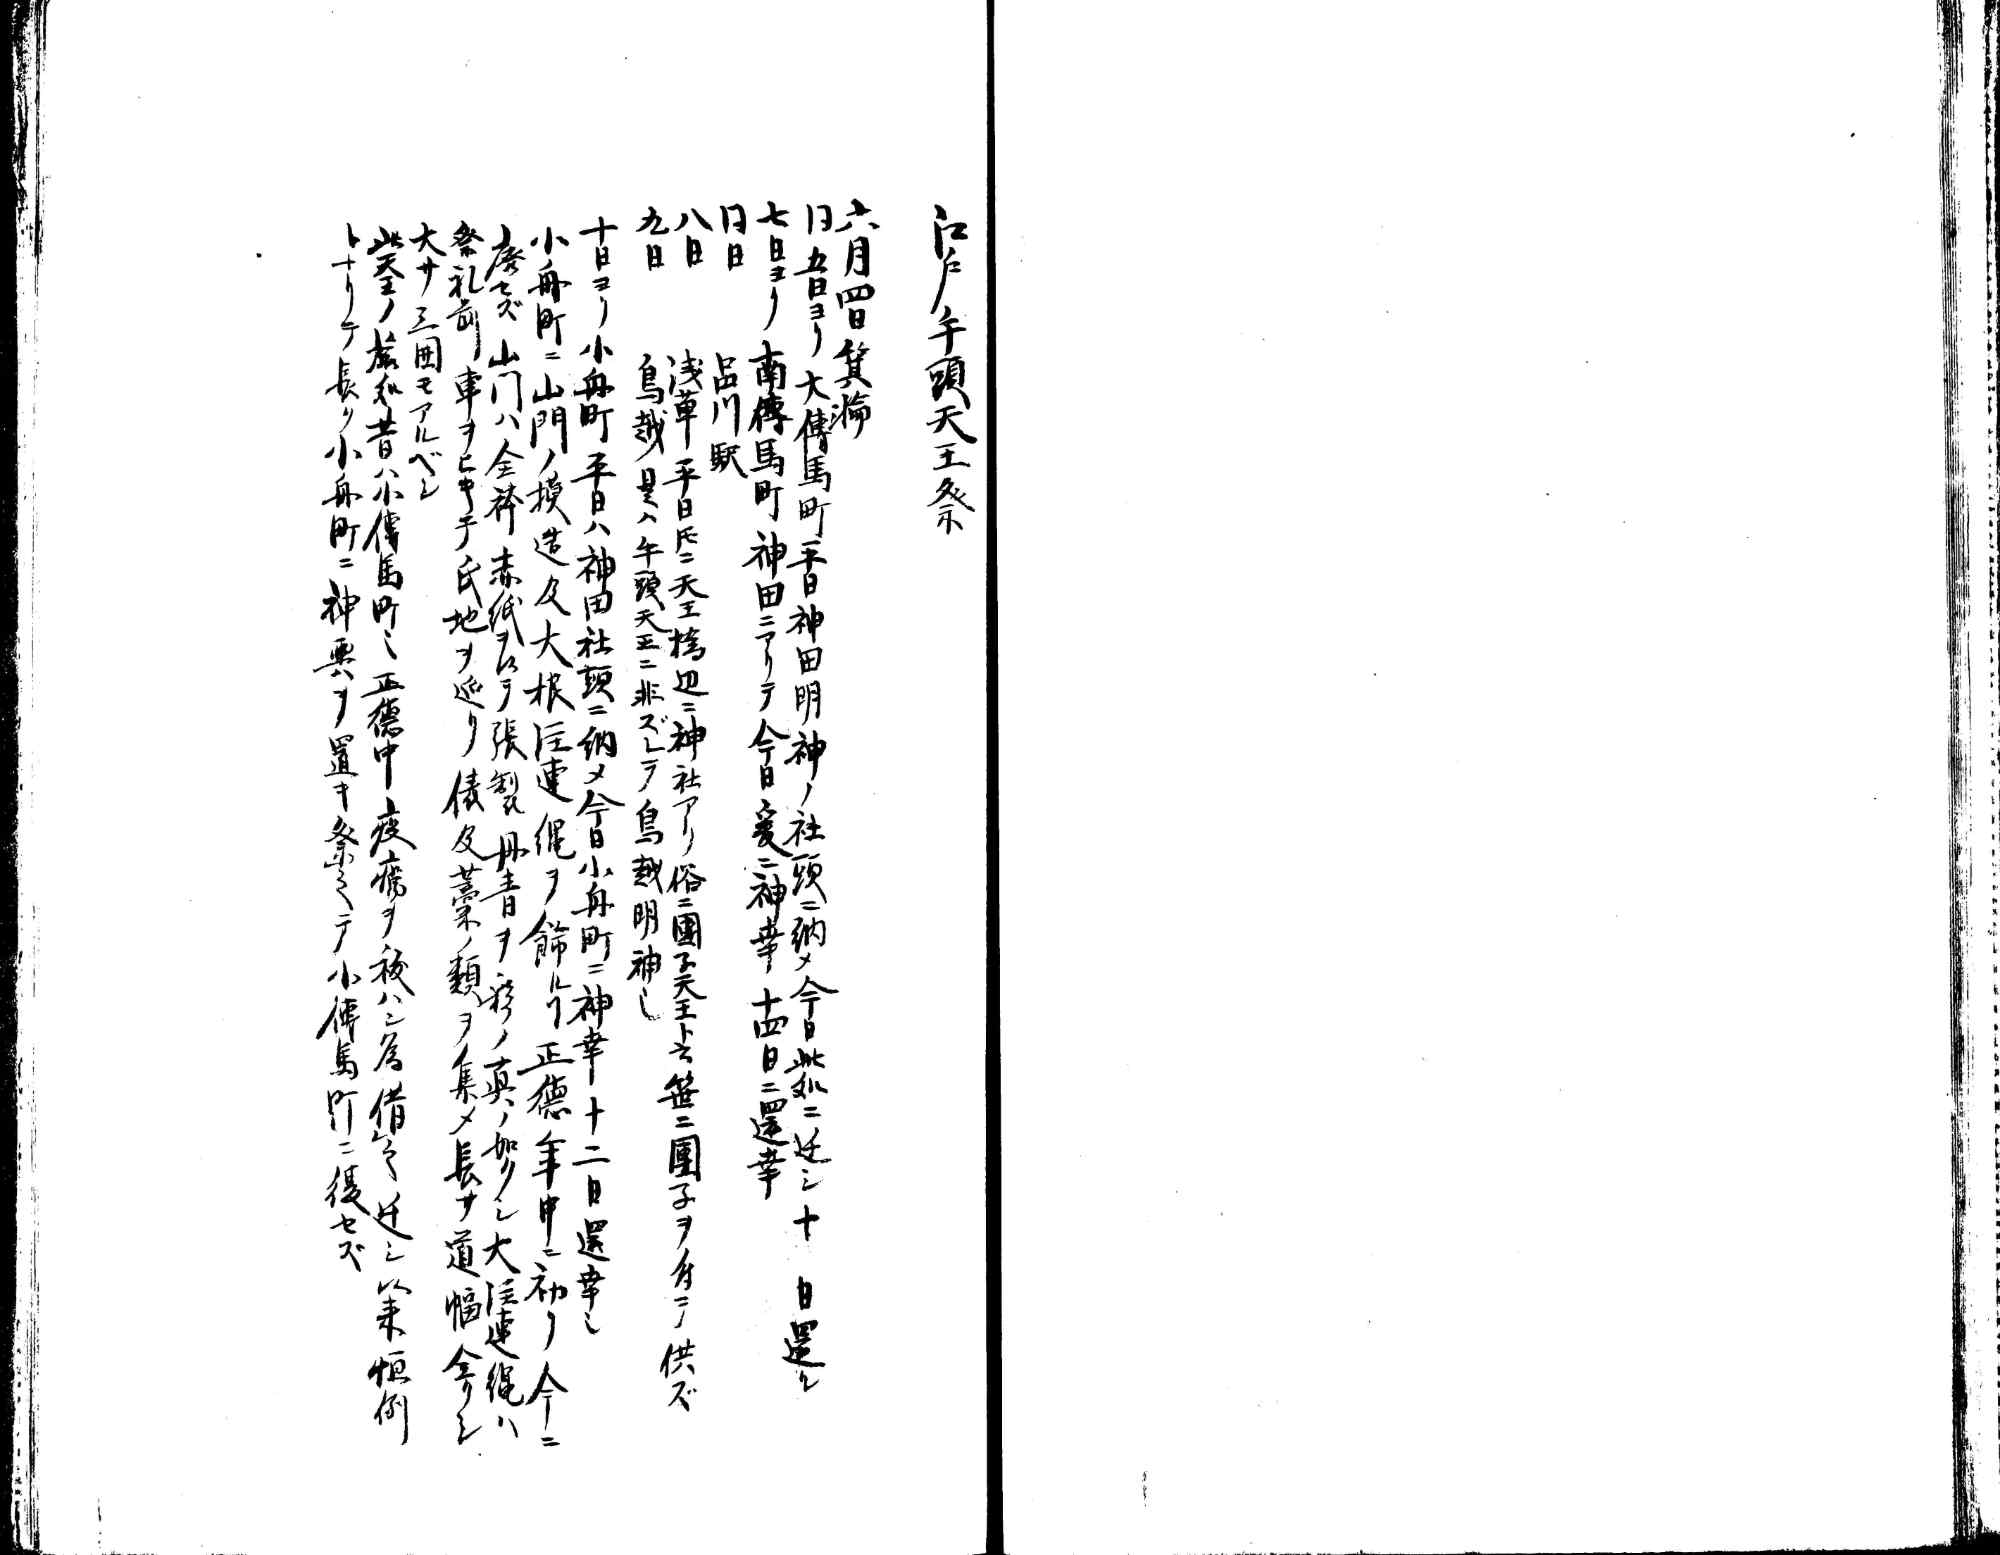 江戸牛頭天王祭
六月四日箕輪
同五日ヨリ大傳馬町平日神田明神ノ社頭ニ納メ今日此処ニ迁シ十 日還ル
七日ヨリ南傳馬町神田ニアリテ今日爰ニ神幸十四日ニ還幸
同日 品川駅
八日 浅草平日氏ニ天王橋辺ニ神社アリ俗ニ團子天王ト云笹ニ團子ヲ付ニテ供ズ
九日 鳥越是ハ牛頭天王ニ非ズシテ鳥越明神也
十日ヨリ小舟町平日ハ神田社頭ニ納メ今日小舟町ニ神幸十二日還幸也
小舟町ニ山門ノ摸造及大根注連縄ヲ飾ルヿ正徳年中ニ初リ今ニ
廃セズ山门ハ全 赤紙ヲ以テ張製丹青ヲ彩ノ真ノ如クシ大注連縄ハ
祭礼前車ヲヒキテ氏地ヲ巡リ俵及藁ノ類ヲ集メ長サ道幅全クシ
大サ三囲モアルベシ
此天王ノ旅処昔ハ小傳馬町也正徳中疫癘ヲ祓ハン為借令テ迁シ以来恒例
トナリテ長ク小舟町ニ神輿ヲ置キ祭令テ小傳馬町ニ復セズ